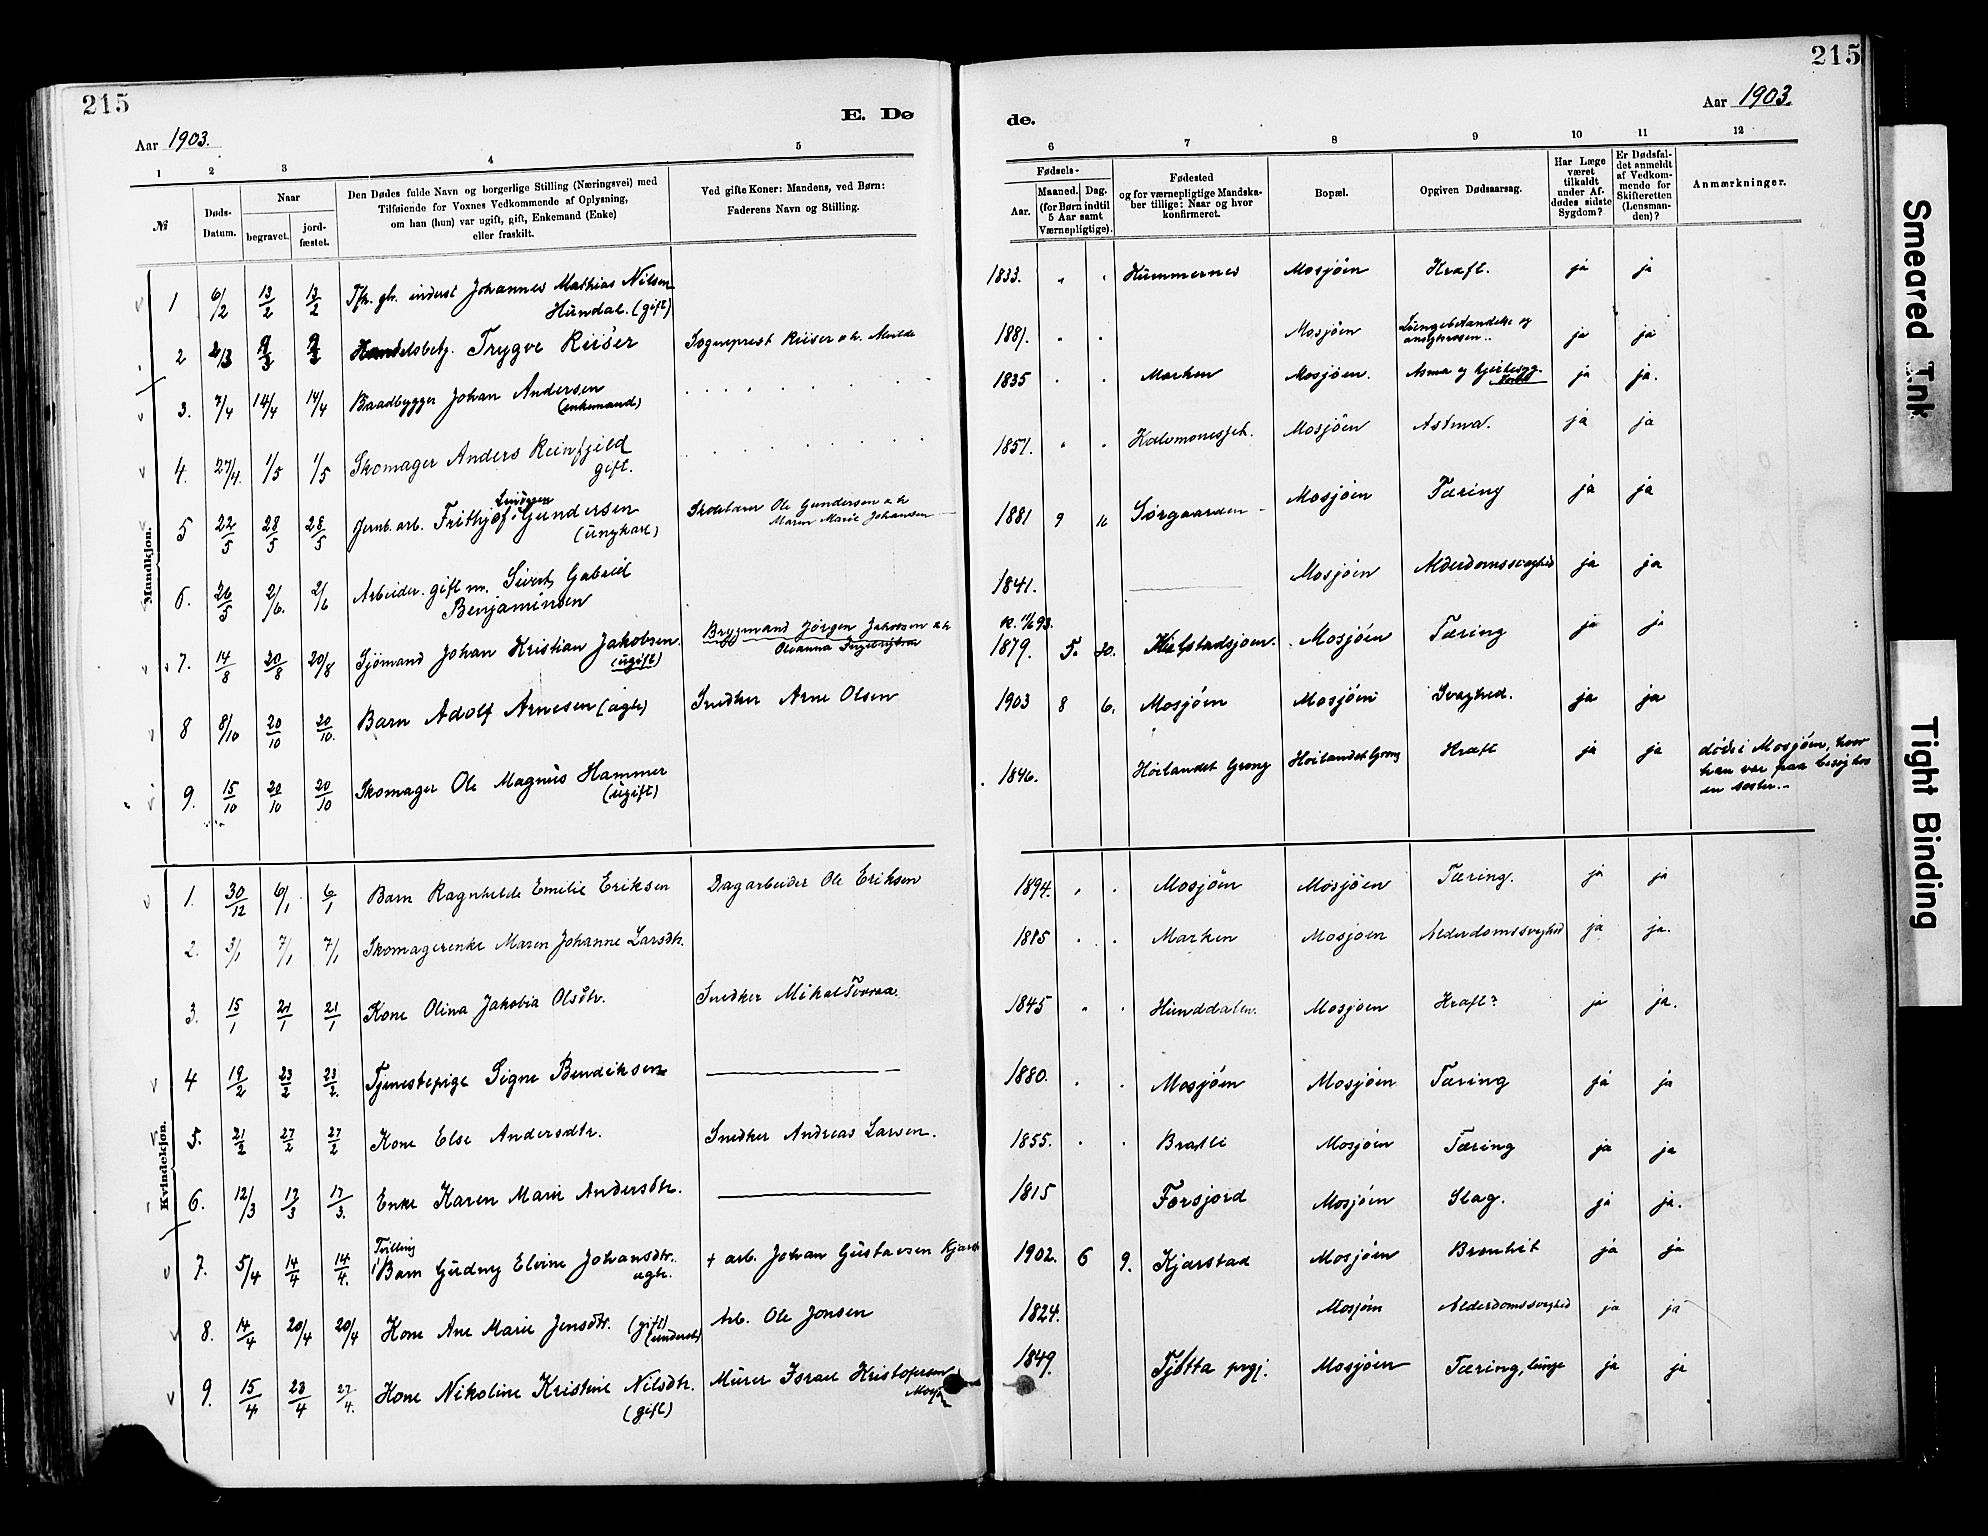 215
215
E. Dø
de.
Aar 1903.
Aar 1903.
1 2 3 4 5
6 7 8 9 10 11 12
№
Døds-Datum.
Naar
begravet.
jord-fæstet.
Den Dødes fulde Navn og borgerlige Stilling (Næringsvei) med
Tilføiende for Voxnes Vedkommende af Oplysning,
om han (hun) var ugift, gift, Enkemand (Enke)
eller fraskilt.
Ved gifte Koner: Mandens, ved Børn:
Faderens Navn og Stilling.
Fødsels-
Aar.
Maaned. Dag.
(for Børn indtil
5 Aar samt
Værnepligtige).
Fødested
og for værnepligtige Mandska-
ber tillige: Naar og hvor
konfirmeret.
Bopæl.
Opgiven Dødsaarsag.
Har Læge
været
tilkaldt
under Af-
dødes sidste
Sygdom?
Er Dødsfal-
det anmeldt
af Vedkom-
mende for
Skifteretten
(Lensman-
den)?
Anmærkninger.
Mandkjøn.
1 6/2 13/2 13/2 inderst Johannes Mathias Nilsen Hundal. (gift) 1833. Mosjöen Kræft. ja ja
2 9/3 Handelsbetj. Trygve Reiser Sogneprest Reiser o h. 1881. Mosjöen ja ja
3. 7/4 14/4 14/4 Baadbygger Johan Andersen (enkemand) 1835 Marken Mosjöen. Asma og ja ja.
4. 27/4. 1/5 1/5 Skomager Anders Reinfjeld gift. 1851. Mosjöen Astma. ja ja
5 22/5 28/5 28/5 Jernb. arb. Frithjof Gundersen (ungkarl) Skolelærer Ole Gundersen o h Maren Marie Johansen 1881 9 16 Sörgaarden Mosjöen Tæring ja ja
6. 26/5 2/6. 2/6 Arbeider. gift m. Sivert Gabriel Benjaminsen 1841. Mosjöen Alderdomssvaghed ja ja
7. 14/8 20/8 20/8 Sjömand Johan Kristian Jakobsen. (ugift) Bryggmand Jörgen Jakobsen o h 1879. 5. 20. Mosjöen Tæring ja ja
8 8/10 20/10 20/10. Barn Adolf Arnesen (ægte) Snedker Arne Olsen 1903 8 6. Mosjöen Mosjöen Svaghed. ja ja
9. 15/10 20/10 20/10 Skomager Ole Magnus Hammer (ugift) 1846. Höilandet Grong Höilandet Grong Kræft ja ja döde i Mosjöen, hvor
han var paa besög hos
en søster.
Kvindekjøn.
1. 30/12 6/1 6/1 Barn Ragnhilde Emilie Eriksen Dagarbeider Ole Eriksen 1894. Mosjöen Mosjöen Tæring. ja ja
2. 3/1 7/1 7/1 Skomagerenke Maren Johanne Larsdtr. 1815 Marken Mosjöen Alderdomssvaghed ja ja.
3. 15/1 21/1 21/1 Kone Olina Jakobia Olsdtr. Snedker Mikal 1845 Hunddalen. Mosjöen Kræft? ja ja.
4 19/2 23/2 23/2. Tjenestepige Signe Bendiksen 1880. Mosjöen Mosjöen Tæring ja ja
5. 21/2 27/2 27/2 Kone Else Andersdtr. Snedker Andreas Larsen. 1855. Bratli Mosjöen Tæring ja ja
6. 12/3 17/3 17/3. Enke Karen Marie Andersdtr. 1815 Forsjord Mosjöen Slag. ja ja.
7. 5/4 14/4 14/4. Tvilling Barn Gudny Elvine Johansdtr. ægte. + arb. Johan Gustavsen 1902. 6 9. Kjærstad Mosjöen Bronkit ja ja
8. 14/4 20/4 20/4 Kone Ane Marie Jensdtr. (gift) (inderst) Arb. Ole Jonsen 1824. Mosjöen Alderdomssvaghed ja ja
9. 15/4 23/4 27/4. Kone Nikoline Kristine Nilsdtr. (gift) Murer Israel Kristofersen 1849. Tjötta prgj. Mosjöen Tæring, lunge ja ja
Smeared Ink
Tight Binding